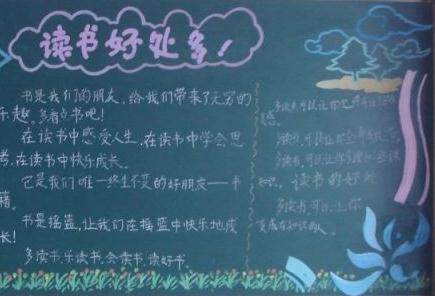 读书好处多!
书是我们的朋友，给我们带来了无穷的
乐趣，多看点书吧!
在读书中感受人生，在读书中学会思
考，在读书中快乐成长。
它是我们唯一终生不变的好朋友——书
籍。
书是摇篮，让我们在摇篮中快乐地成
长!
多读书，乐读书，会读书，读好书。
多读书，可以让你
灵感。
多读书，可以让你
多读书，可以让你
知识。读书的好处
多读书，可以让你
变成有知识的人。